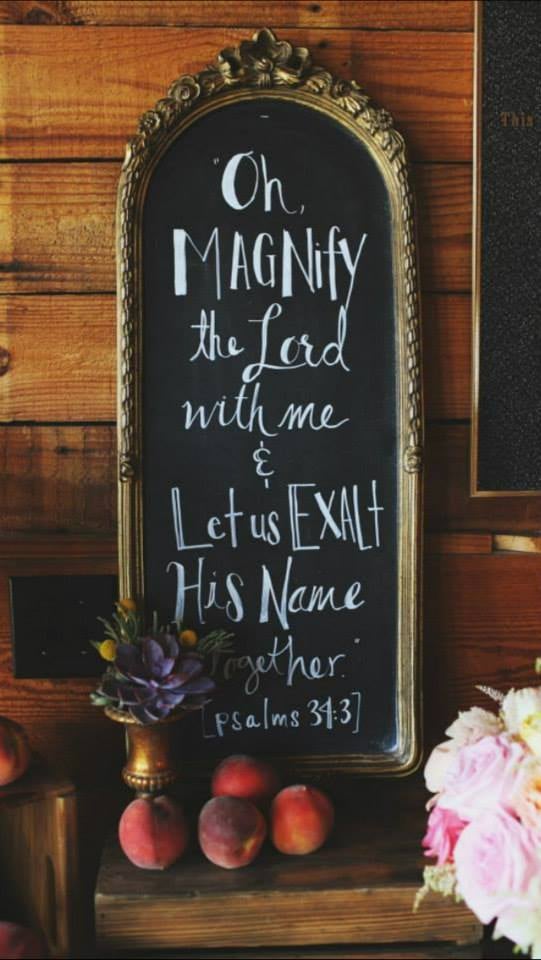 "Oh,
MAGNify
the Lord
with me
&
Let us EXALt
His Name
Together."
[psalms 34:3]
This